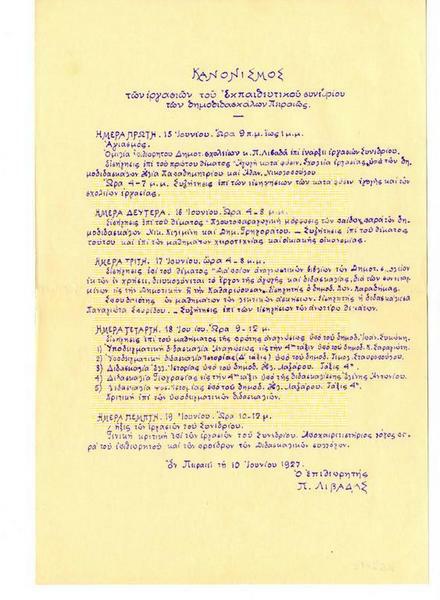 ΚΑΝΟΝΙΣΜΟΣ
τῶν ἐργασιῶν τοῦ Ἐκπαιδευτικοῦ συνεδρίου
τῶν δημοδιδασκάλων Πειραιῶς.
ΗΜΕΡΑ ΠΡΩΤΗ. 15 Ἰουνίου. Ὥρα 9 π.μ. ἕως 1 μ.μ.
Ἁγιασμός.
Ὁμιλία Ἐπιθεωρητοῦ Δημοτ. σχολείων κ. Π. Λιβαδᾶ ἐπὶ ἐνάρξει ἐργασιῶν Συνεδρίου.
Εἰσηγήσεις ἐπὶ τοῦ πρώτου θέματος Ἀγωγὴ κατὰ φύσιν, Σχολεῖα ἐργασίας, ὑπὸ τῶν δη-
μοδιδασκάλων Ἠλία Παπαδημητρίου καὶ
Ὥρα 4-7 μ.μ. Συζητήσεις ἐπὶ τῶν εἰσηγήσεων τῶν κατὰ φύσιν ἀγωγῆς καὶ τῶν
σχολείων ἐργασίας.
ΗΜΕΡΑ ΔΕΥΤΕΡΑ. 16 Ἰουνίου. Ὥρα 4-8 μ.μ.
Εἰσηγήσεις ἐπὶ τοῦ θέματος τῶν
μοδιδασκάλων Νικ. καὶ Δημ. Γρηγοράτου. - Συζητήσεις ἐπὶ τοῦ θέματος
τούτου καὶ ἐπὶ τῶν μαθημάτων χειροτεχνίας καὶ οἰκιακῆς οἰκονομίας.
ΗΜΕΡΑ ΤΡΙΤΗ. 17 Ἰουνίου, ὥρα 4-8 μ.μ.
Εἰσηγήσεις ἐπὶ τοῦ θέματος ἀναγνωστικῶν βιβλίων τῶν Δημοτ.
ἐκ τῶν ἐν χρήσει, τὸ ἔργον τῆς ἀγωγῆς καὶ διδασκαλίας, διὰ τῶν
εἰς τὴν Δημοτικὴν ἢ τὴν Καθαρεύουσαν. Εἰσηγητὴς ὁ δημοδ. Καραδήμας.
Σπουδαιότης μαθημάτων τῶν τεχνικῶν ἀσκήσεων. Εἰσηγήτρια ἡ διδασκάλισσα
Παναγιώτα Σπυρίδου. - Συζητήσεις ἐπὶ τῶν εἰσηγήσεων τῶν ἀνωτέρω θεμάτων.
ΗΜΕΡΑ ΤΕΤΑΡΤΗ. 18 Ἰουνίου Ὥρα 9-12 μ.
Εἰσηγήσεις ἐπὶ τοῦ μαθήματος τῆς πρώτης ἀναγνώσεως ὑπὸ τοῦ δημοδ. Ἰωάν.
1) Ὑποδειγματικὴ διδασκαλία Ἀναγνώσεως εἰς τὴν 4ην τάξιν ὑπὸ τοῦ δημοδ. Κ. Σαραγιώτη.
2) Ὑποδειγματικὴ διδασκαλία Ἱστορίας (Δ' τάξις) ὑπὸ τοῦ δημοδ. Τιμοθ. Σταυροπούλου.
3) Διδασκαλία Ἱστορίας ὑπὸ τοῦ δημοδ. Λαζάρου. Τάξις 4η.
4) Διδασκαλία Γεωγραφίας εἰς τὴν 4ην τάξιν ὑπὸ τῆς διδασκαλίσσης Ἑλένης Ἀντωνίου.
5) Διδασκαλία ὑπὸ τοῦ δημοδ. Λαζάρου. Τάξις 4η.
Κριτικὴ ἐπὶ τῶν ὑποδειγματικῶν διδασκαλιῶν.
ΗΜΕΡΑ ΠΕΜΠΤΗ. 19 Ἰουνίου. Ὥρα 10-12 μ.
Λῆξις τῶν ἐργασιῶν τοῦ Συνεδρίου.
Γενικὴ κριτικὴ ἐπὶ τῶν ἐργασιῶν τοῦ Συνεδρίου. Ἀποχαιρετιστήριος λόγος
τοῦ ἐπιθεωρητοῦ καὶ τῶν προέδρων τῶν Διδασκαλικῶν συλλόγων.
Ἐν Πειραιεῖ τῇ 10 Ἰουνίου 1927.
Ὁ ἐπιθεωρητὴς
Π. ΛΙΒΑΔΑΣ